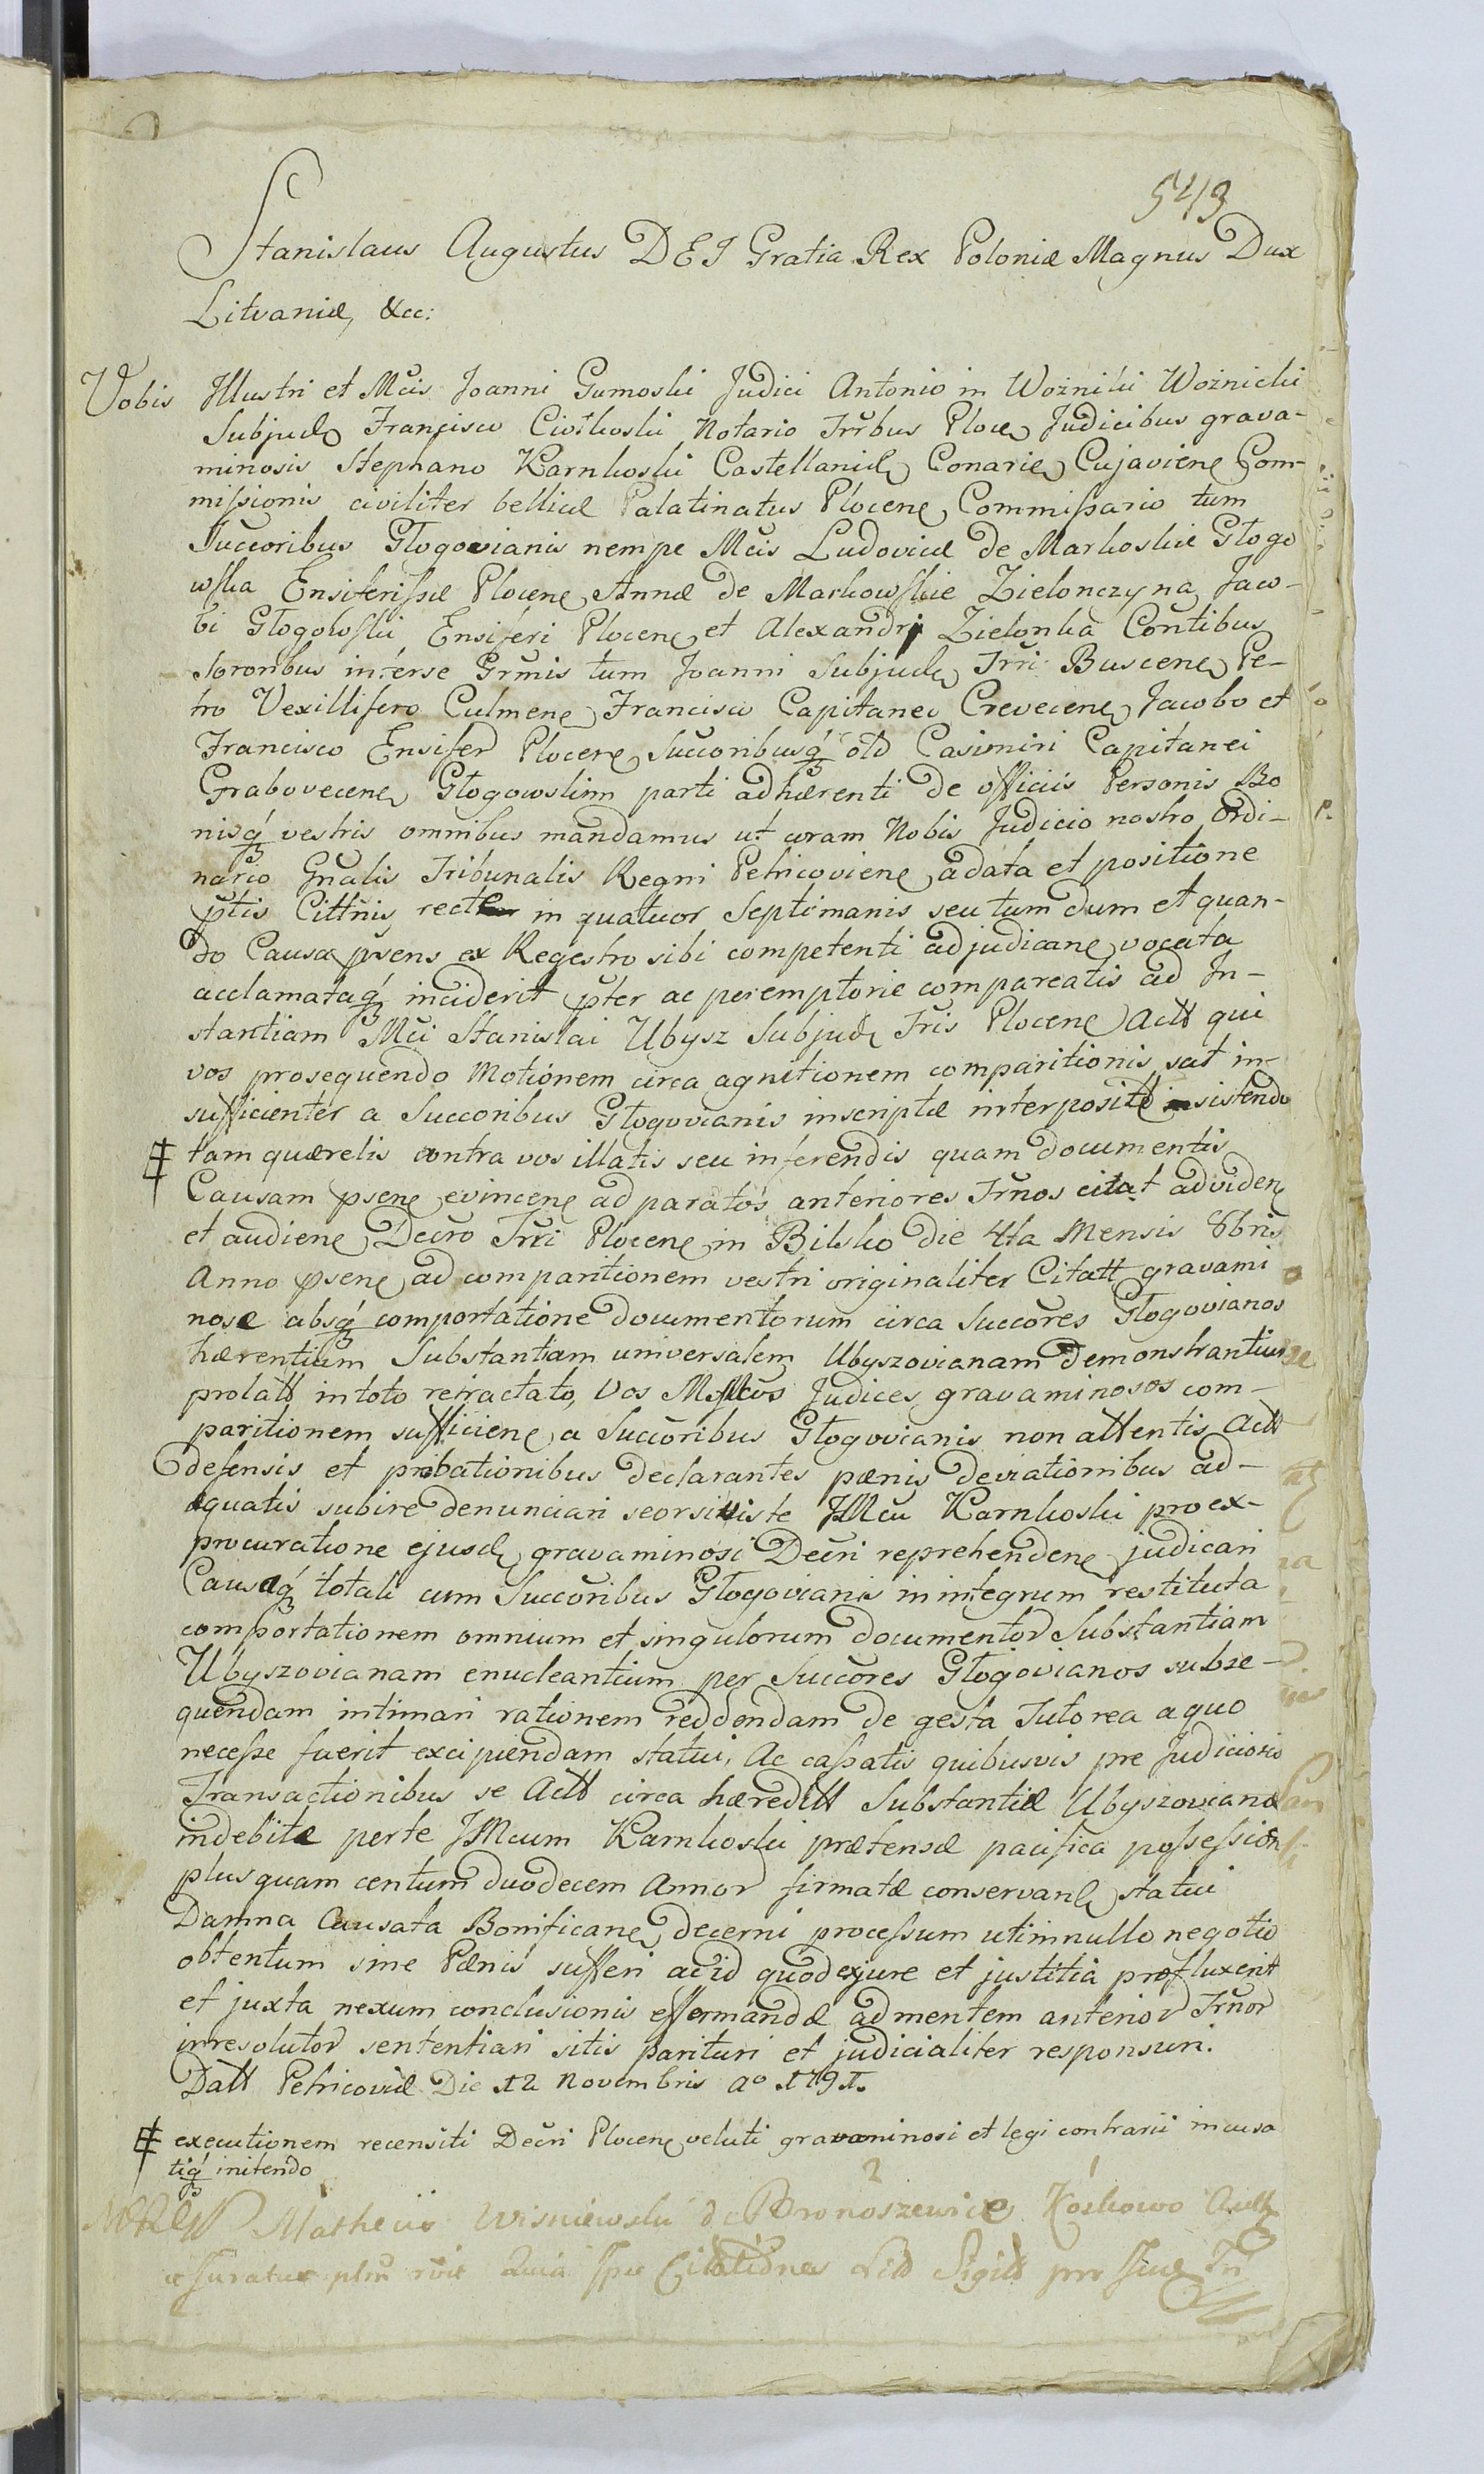 543
Stanislaus Augustus DEI Gratia Rex Poloniæ Magnus Dux
Litvaniæ, &cc:
Vobis Illustri et Mcis Joanni Gumoski Judici Antonio in Woźniki Woźnicki
Subjudo Francisco Notario Trrbus Ploce Judicibus grava-
minosis Stephano Karnkoski Castellanidę Conarię Cujaviene Com-
missionis civiliter bellicæ Palatinatus Plocene Commissario tum
Succoribus Głogovianis nempe Mcis Ludovicæ de Markoskie Głogo
wska Ensiferissæ Plocene Annæ de Markowskie Zielonczyna Jaco-
bi Głogoloski Ensiferi Plocene et Alexandri Zielonka Contibus
Sororibus interse Grmis tum Joanni Subjudę Trri Buscene Pe-
tro Vexillifero Culmene Francisco Capitaneo Crevecene Jacobo et
Francisco Ensifer Plocene Succoribusq́ old Casimiri Capitanei
Grabovecene Głogowskim parti adhærenti de officiis Personis Bo
nisq́ vestris omnibus mandamus ut coram Nobis Judicio nostro Ordi-
nario Gnalis Tribunalis Regni Petricoviene adata et positione
ptis Cittnis recte in quatuor Septimanis seu tum dum et quan-
do Causa psens ex Regestro sibi competenti adjudicane vocata
acclamataq́ inciderit pter ac peremptorie compareatis ad In-
stantiam Mci Stanislai Ubysz Subjudę Tris Plocene Actt qui
vos prosequendo Motionem circa agnitionem comparitionis sat in-
sufficienter a Succoribus Głogovianis inscriptæ interposite insistendo
tam quærelis contra vos illatis seu inferendis quam documentis
Causam psene evincene ad paratos anteriores Trnos citat ad viden
et audiene Decro Trri Plocene in Bilsko die 4ta Mensis 8bris
Anno psene ad comparitionem vestri originaliter Citatt gravami
nose absq́ comportatione documentorum circa Succores Głogovianos
hærentium Substantiam universalem Ubyszovianam demonstrantium
prolatt in toto retractato, Vos Judices gravaminosos com-
paritionem sufficiene a Succoribus Głogovianis non attentis Actt
defensis et probationibus declarantes pænis deviationibus ad-
æquatis subire denunciari seorsiviste JMcu Karnkoski pro ex-
procuratione ejusdę gravaminosi Decri reprehendene judicari
Causaq́ totali cum Succoribus Głogovianis in integrum restituta
comportationem omnium et singulorum documentor Substantiam
Ubyszovianam enucleantium per Succores Głogovianos subse-
quendam intimari rationem reddendam de gesta Tutorea aquo
necesse fuerit excipiendam statui, Ac cassatis quibusvis præ Judiciosis
Transactionibus se Actt circa hæreditt Substantiæ Ubyszovianæ
indebitæ perte JMcum Karnkoski prætensæ pacifica possession
plusquam centum duodecem Annor firmatæ conservandę statui
Damna Causata Bonificane decerni processum uti in nullo negotio
obtentum sine Pænis sufferi acid quod exjure et justitia profluxerit
et juxta nexum conclusionis efformandæ ad mentem anterior Trnor
irresolutor sententiari sitis parituri et judicialiter responsuri.
Datt Petricoviæ Die 12 Novembris Ao 1791.
executionem recensiti Decri Plocene veluti gravaminosi et legi contrarii incusa
tiq́ initendo
Matheus Wisniewski d Bronoszewice Kóskowo
juratus Quia Citationes Sigill pro